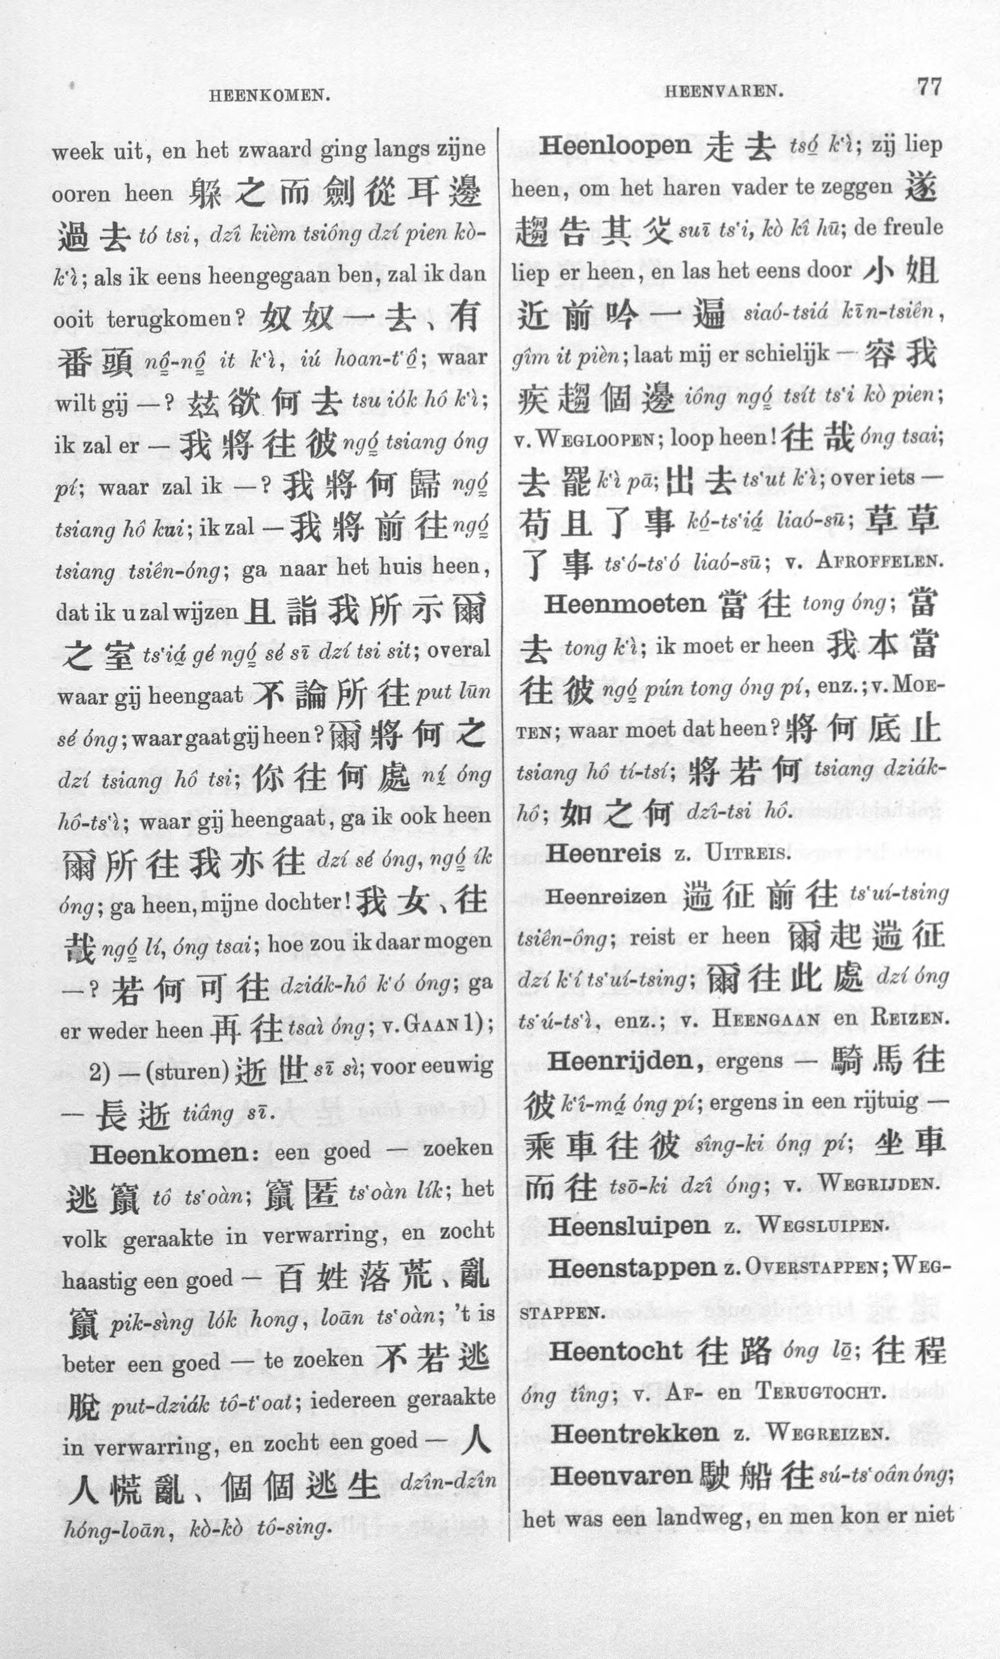 HEENKOMEN.
HEENVAREN.
77
week uit, en het zwaard ging langs zijne
ooren heen 躱之而劍從耳邊
過去 tó tsi, dzî kièm tsiông dzí pien kò-
k‘ì; als ik eens heengegaan ben, zal ik dan
ooit terugkomen? 奴奴一去、有
番頭 nô̤-nô̤ it k‘ì, iú hoan-t‘ô̤; waar
wilt gij —? 兹欲何去 tsu iók hô k‘ì;
ik zal er — 我將往彼 ngó̤ tsiang óng
pí; waar zal ik —? 我將何歸 ngó̤
tsiang hô kui; ik zal — 我將前往 ngó̤
tsiang tsiên-óng; ga naar het huis heen,
dat ik u zal wijzen 且詣我所示爾
之室 ts‘iá̤ gé ngó̤ sé sī dzí tsi sit; overal
waar gij heengaat 不論所往 put lūn
sé óng; waar gaat gij heen? 爾將何之
dzí tsiang hô tsi; 你往何處 ní̤ óng
hô-ts‘ì; waar gij heengaat, ga ik ook heen
爾所往我亦往 dzí sé óng, ngó̤ ík
óng; ga heen, mijne dochter! 我女、往
哉 ngó̤ lí, óng tsai; hoe zou ik daar mogen
—? 若何可往 dziák-hô k‘ó óng; ga
er weder heen 再往 tsaì óng; v. GAAN 1);
2) — (sturen) 逝世 sī sì; voor eeuwig
— 長逝 tiâng sī.
Heenkomen: een goed — zoeken
逃竄 tô ts‘oàn; 竄匿 ts‘oàn lík; het
volk geraakte in verwarring, en zocht
haastig een goed — 百姓落荒、亂
竄 pik-sìng lók hong, loān ts‘oàn; ’t is
beter een goed — te zoeken 不若逃
脫 put-dziák tô-t‘oat; iedereen geraakte
in verwarring, en zocht een goed — 人
人慌亂、個個逃生 dzîn-dzîn
hóng-loān, kò-kò tô-sing.
Heenloopen 走去 tsó̤ k‘ì; zij liep
heen, om het haren vader te zeggen 遂
趨告其父 suī ts‘i, kò kî hū; de freule
liep er heen, en las het eens door 小姐
近前吟一遍 siaó-tsiá kīn-tsiên,
gîm it pièn; laat mij er schielijk — 容我
疾趨個邊 iông ngó̤ tsít ts‘i kò pien;
v. WEGLOOPEN; loop heen! 往哉 óng tsai;
去罷 k‘ì pā; 出去 ts‘ut k‘ì; over iets —
苟且了事 kó̤-ts‘iá̤ liaó-sū; 草草
了事 ts‘ó-ts‘ó liaó-sū; v. AFROFFELEN.
Heenmoeten 當往 tong óng; 當
去 tong k‘ì; ik moet er heen 我本當
往彼 ngó̤ pún tong óng pí, enz.; v. MOE-
TEN; waar moet dat heen? 將何底止
tsiang hô tí-tsí; 將若何 tsiang dziák-
hô; 如之何 dzî-tsi hô.
Heenreis z. UITREIS.
Heenreizen 遄征前往 ts‘uí-tsing
tsiên-óng; reist er heen 爾起遄征
dzí k‘í ts‘uí-tsing; 爾往此處 dzí óng
ts‘ú-ts‘ì, enz.; v. HEENGAAN en REIZEN.
Heenrijden, ergens — 騎馬往
彼 k‘î-má̤ óng pí; ergens in een rijtuig —
乘車往彼 sîng-ki óng pí; 坐車
而往 tsō-ki dzî óng; v. WEGRIJDEN.
Heensluipen z. WEGSLUIPEN.
Heenstappen z. OVERSTAPPEN; WEG-
STAPPEN.
Heentocht 往路 óng lō̤; 往程
óng tîng; v. AF- en TERUGTOCHT.
Heentrekken z. WEGREIZEN.
Heenvaren 駛船往 sú-ts‘oân óng;
het was een landweg, en men kon er niet